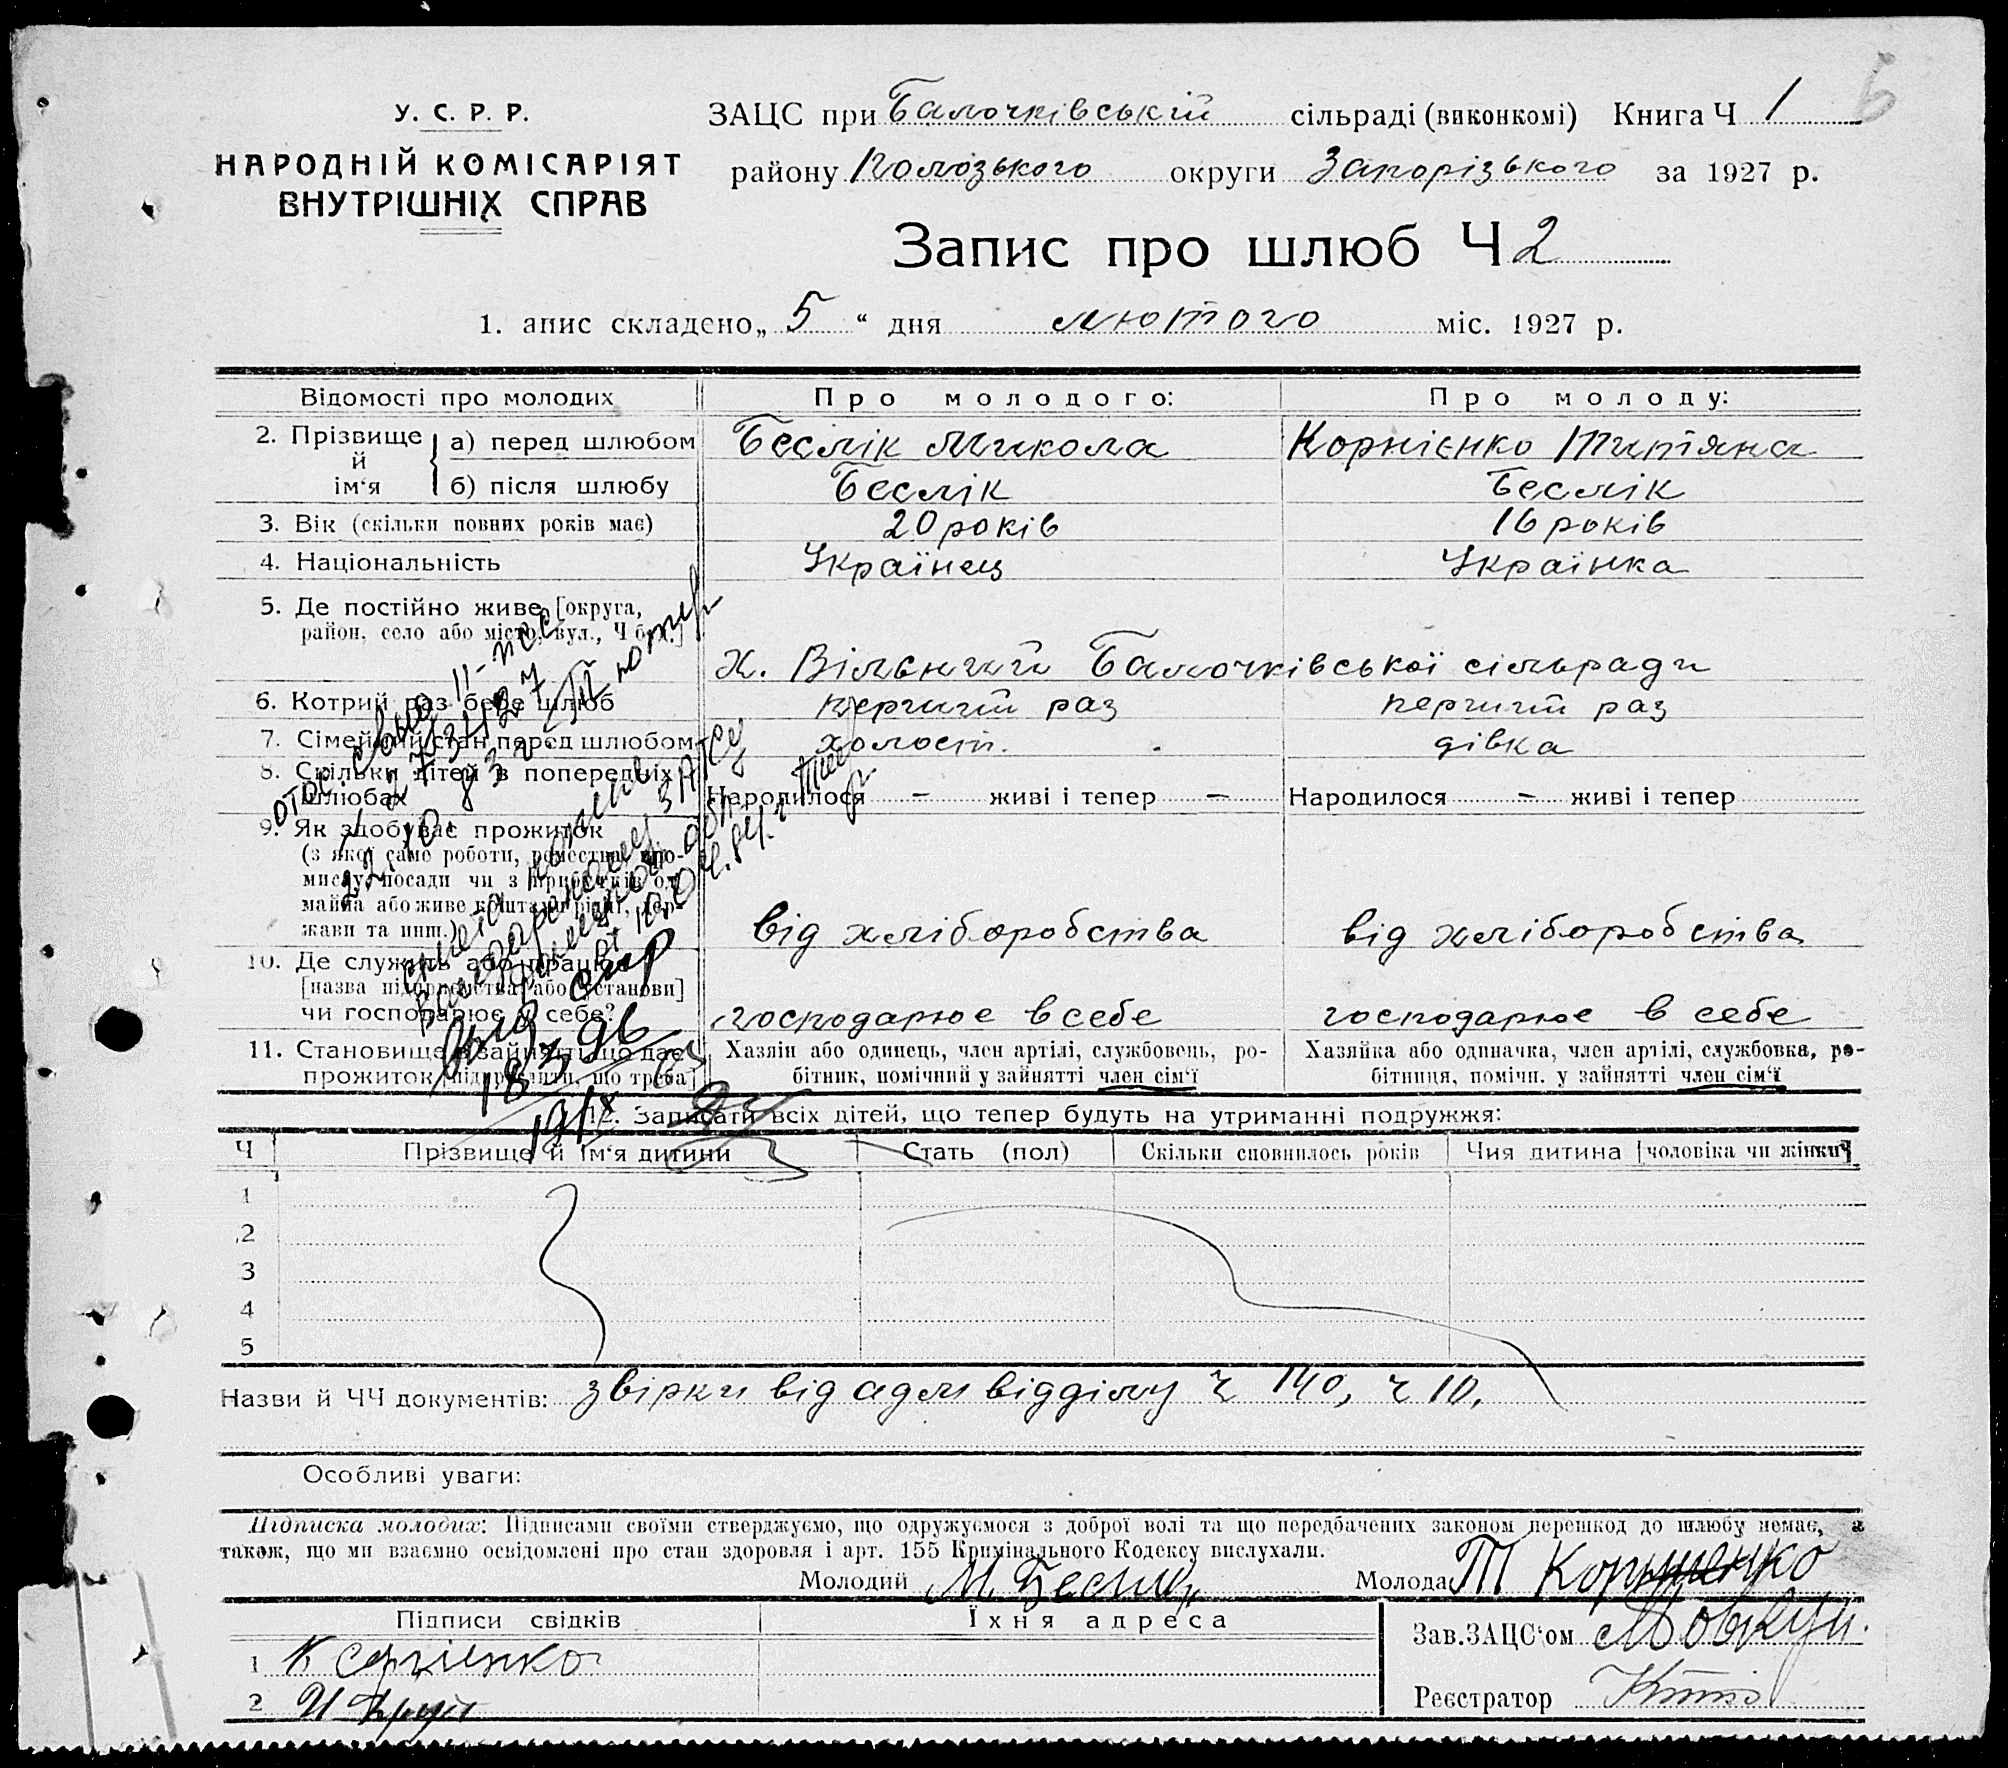 У. С. Р. Р.
НАРОДНІЙ КОМІСАРІЯТ
ВНУТРІШНІХ СПРАВ
ЗАЦС при Балочківській сільраді (виконкомі) Книга Ч 1
району Пологзького округи Запорізького за 1927 р.
Запис про шлюб Ч 2
1. апис складено „ 5 “ дня лютого міс. 1927 р.
Відомості про молодих Про молодого: Про молоду:
2. Прізвище й ім‘я а) перед шлюбом Беслік Микола Корнієнко Титяна
б) після шлюбу Беслік Беслік
3. Вік (скільки повних років має) 20 років 16 років
4. Національність Українец Українка
5. Де постійно живе [округа,
район, село або місто, вул., Ч
х. Вільний Балочківської сільради
6. Котрий раз бере шлюб перший раз перший раз
7. Сімейний стан перед шлюбом холост. дівка
8. Скільки дітей в попередніх
шлюбах Народилося – живі і тепер – Народилося – живі і тепер
9. Як здобуває прожиток
(з якої саме роботи, ремества, про-
мислу, посади чи з прибутків од
майна або живе коштами рідні, дер-
жави та инш.) від хліборобства від хліборобства
10. Де служить або працює
[назва підприємства або установи]
чи господарює у себе? господарює в себе господарює в себе
11. Становище в зайнятті, що дає Хазяін або одинець, член артілі, службовець, ро- Хазяйка або одиначка, член артілі, службовка, ро-
прожиток [підкреслити, що треба] бітник, помічний у зайнятті член сім‘ї бітниця, помічн. у зайнятті член сім‘ї
12. Записати всіх дітей, що тепер будуть на утриманні подружжя:
Ч Прізвище й ім‘я дитини Стать (пол) Скільки сповнилось років Чия дитина [чоловіка чи жінки]
1
2
3
4
5
Назви й ЧЧ документів: звірки від адм відділу ч 140, ч 10.
Особливі уваги:
Підписка молодих: Підписами своїми стверджуємо, що одружуємося з доброї волі та що передбачених законом перешкод до шлюбу немає, а
також, що ми взаємно освідомлені про стан здоровля і арт. 155 Кримінального Кодексу вислухали.
Молодий М. Беслік Молода Т Корниенко
Підписи свідків Їхня адреса
Зав.ЗАЦС‘ом
1
2
Реєстратор